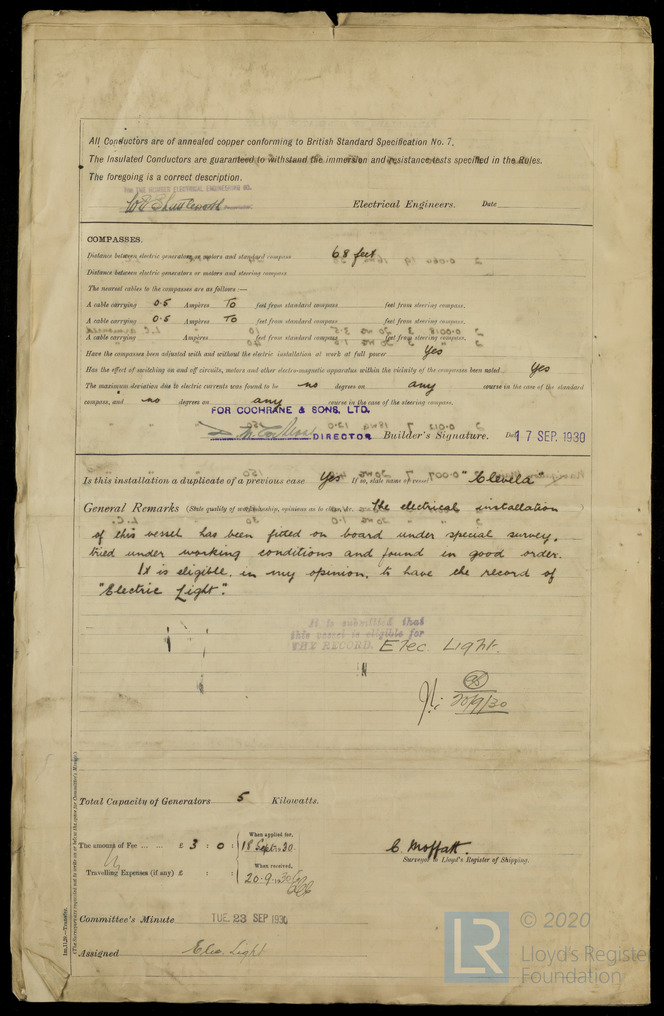 All Conductors are of annealed copper conforming to British Standard Specification No. 7.
The Insulated Conductors are guaranteed to withstand the immersion and resistance tests specified in the Rules.
The foregoing is a correct description.
ELECTRICAL ENGINEERING CO.
Electrical Engineers. Date
COMPASSES.
Distance between electric generators or motors and standard compass 68 feet
Distance between electric generators or motors and steering compass
The nearest cables to the compasses are as follows :—
A cable carrying 0.5 Ampères To feet from standard compass feet from steering compass.
A cable carrying 0.5 Ampères To feet from standard compass feet from steering compass.
A cable carrying Ampères feet from standard compass feet from steering compass.
Have the compasses been adjusted with and without the electric installation at work at full power Yes
Has the effect of switching on and off circuits, motors and other electro-magnetic apparatus within the vicinity of the compasses been noted Yes
The maximum deviation due to electric currents was found to be no degrees on any course in the case of the standard
compass, and no degrees on any course in the case of the steering compass.
FOR COCHRANE & SONS, LTD.
DIRECTOR Builder's Signature. Date 17 SEP. 1930
Is this installation a duplicate of a previous case Yes If so, state name of vessel "Clevela"
General Remarks (State quality of workmanship, opinions as to class, &c. The electrical installation
of this vessel has been fitted on board under special survey,
tried under working conditions and found in good order.
It is eligible, in my opinion, to have the record of
"Electric Light".
It is submitted that
this vessel is eligible for
THE RECORD. Elec Light.
20/9/30
Total Capacity of Generators 5 Kilowatts.
The amount of Fee ... ... £ 3 : 0 : When applied for, 18 Sept 30
C. Moffatt.
Surveyor to Lloyd's Register of Shipping.
Travelling Expenses (if any) £ : : When received, 20.9.30
Committee's Minute TUE. 23 SEP 1930
Assigned Elec. Light
1m.11.28.—Transfer.
© 2020
LR Lloyd's Register
Foundation